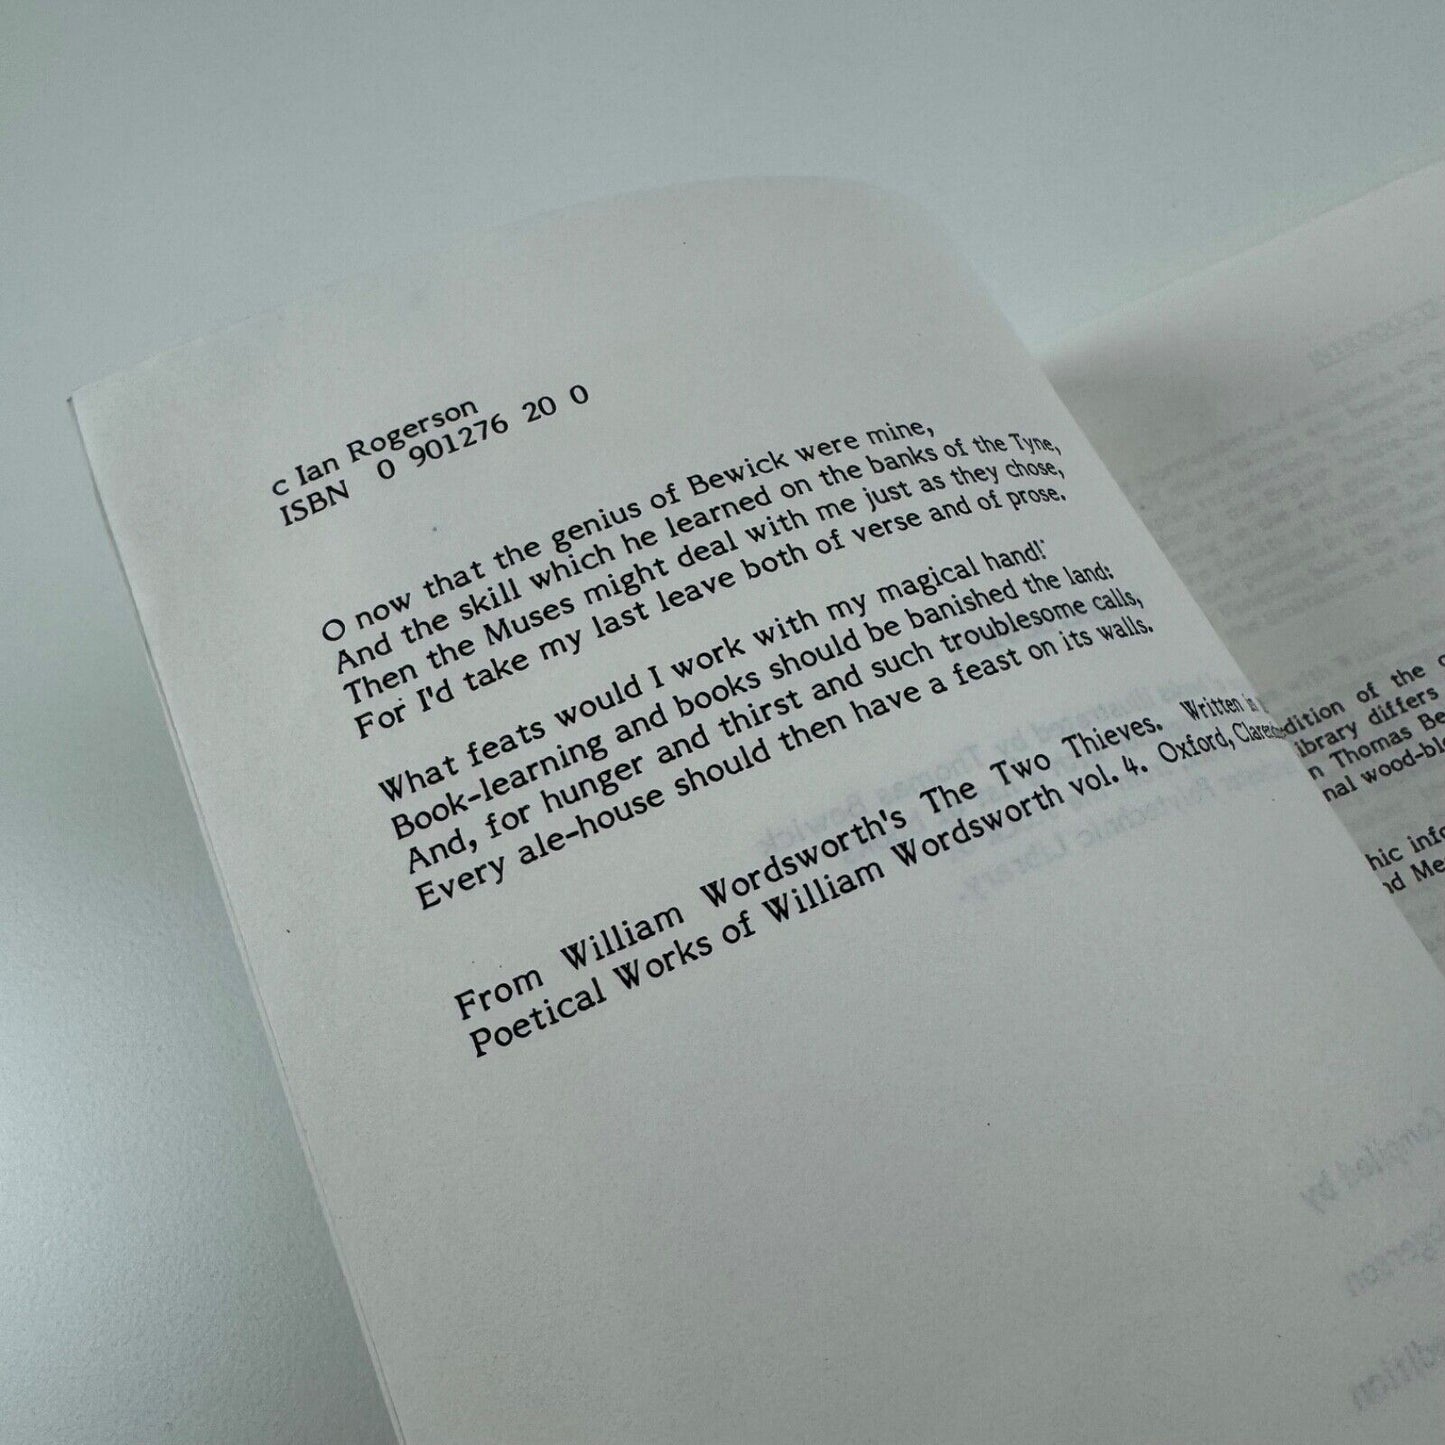 c Ian Rogerson
ISBN 0 901276 20 0
O now that the genius of Bewick were mine,
And the skill which he learned on the banks of the Tyne,
Then the Muses might deal with me just as they chose,
For I'd take my last leave both of verse and of prose.
What feats would I work with my magical hand!
Book-learning and books should be banished the land:
And, for hunger and thirst and such troublesome calls,
Every ale-house should then have a feast on its walls.
From William Wordsworth's The Two Thieves. Written in
Poetical Works of William Wordsworth vol. 4. Oxford,
edition of the
library differs
Thomas
wood-
and